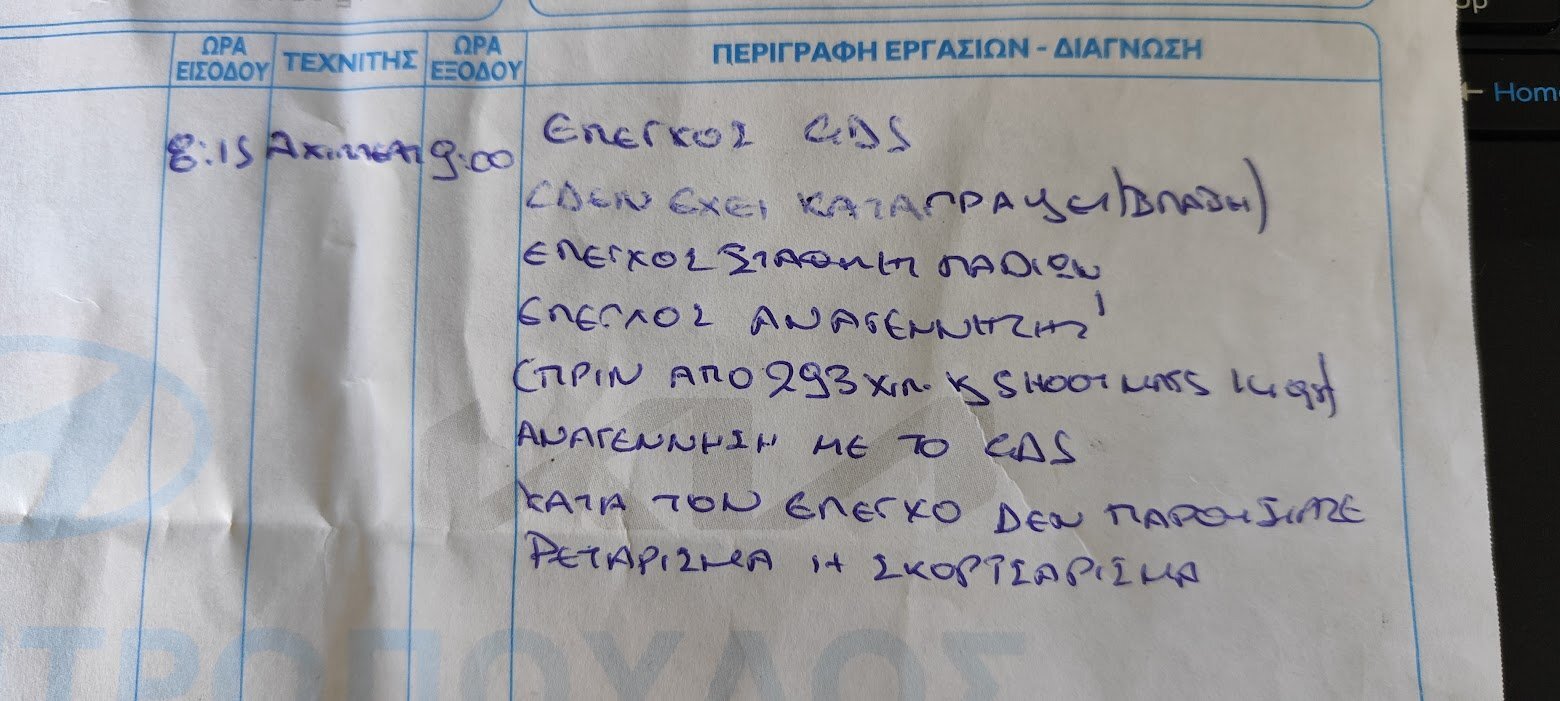 ΩΡΑ ΕΙΣΟΔΟΥ
ΤΕΧΝΙΤΗΣ
ΩΡΑ ΕΞΟΔΟΥ
ΠΕΡΙΓΡΑΦΗ ΕΡΓΑΣΙΩΝ - ΔΙΑΓΝΩΣΗ
8:15
9:00
ΕΛΕΓΧΟΣ GDS
(ΔΕΝ ΕΧΕΙ ΚΑΤΑΓΡΑΨΕΙ ΒΛΑΒΗ)
ΕΛΕΓΧΟΣ ΣΤΑΘΜΗΣ ΛΑΔΙΩΝ
ΕΛΕΓΧΟΣ ΑΝΑΓΕΝΝΗΣΗΣ
(ΠΡΙΝ ΑΠΟ 293 ΧΙΛ. SHOOT
ΑΝΑΓΕΝΝΗΣΗ ΜΕ ΤΟ GDS
ΚΑΤΑ ΤΟΝ ΕΛΕΓΧΟ ΔΕΝ ΠΑΡΟΥΣΙΑΣΕ
ΡΕΤΑΡΙΣΜΑ Η ΣΚΟΡΤΣΑΡΙΣΜΑ
ΤΡΟΠΟΥΛΟΣ
Home